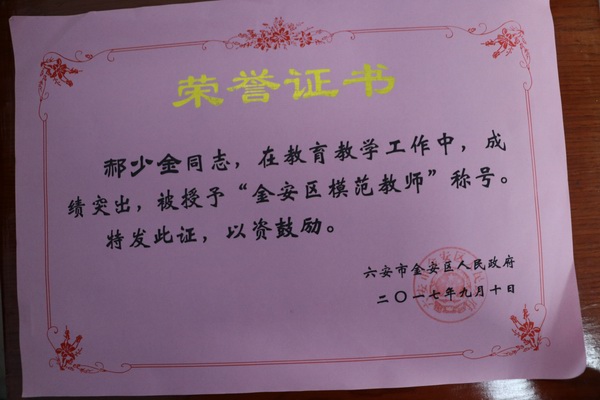 荣誉证书
郝少金同志，在教育教学工作中，成
绩突出，被授予“金安区模范教师”称号。
特发此证，以资鼓励。
六安市金安区人民政府
二〇一七年九月十日